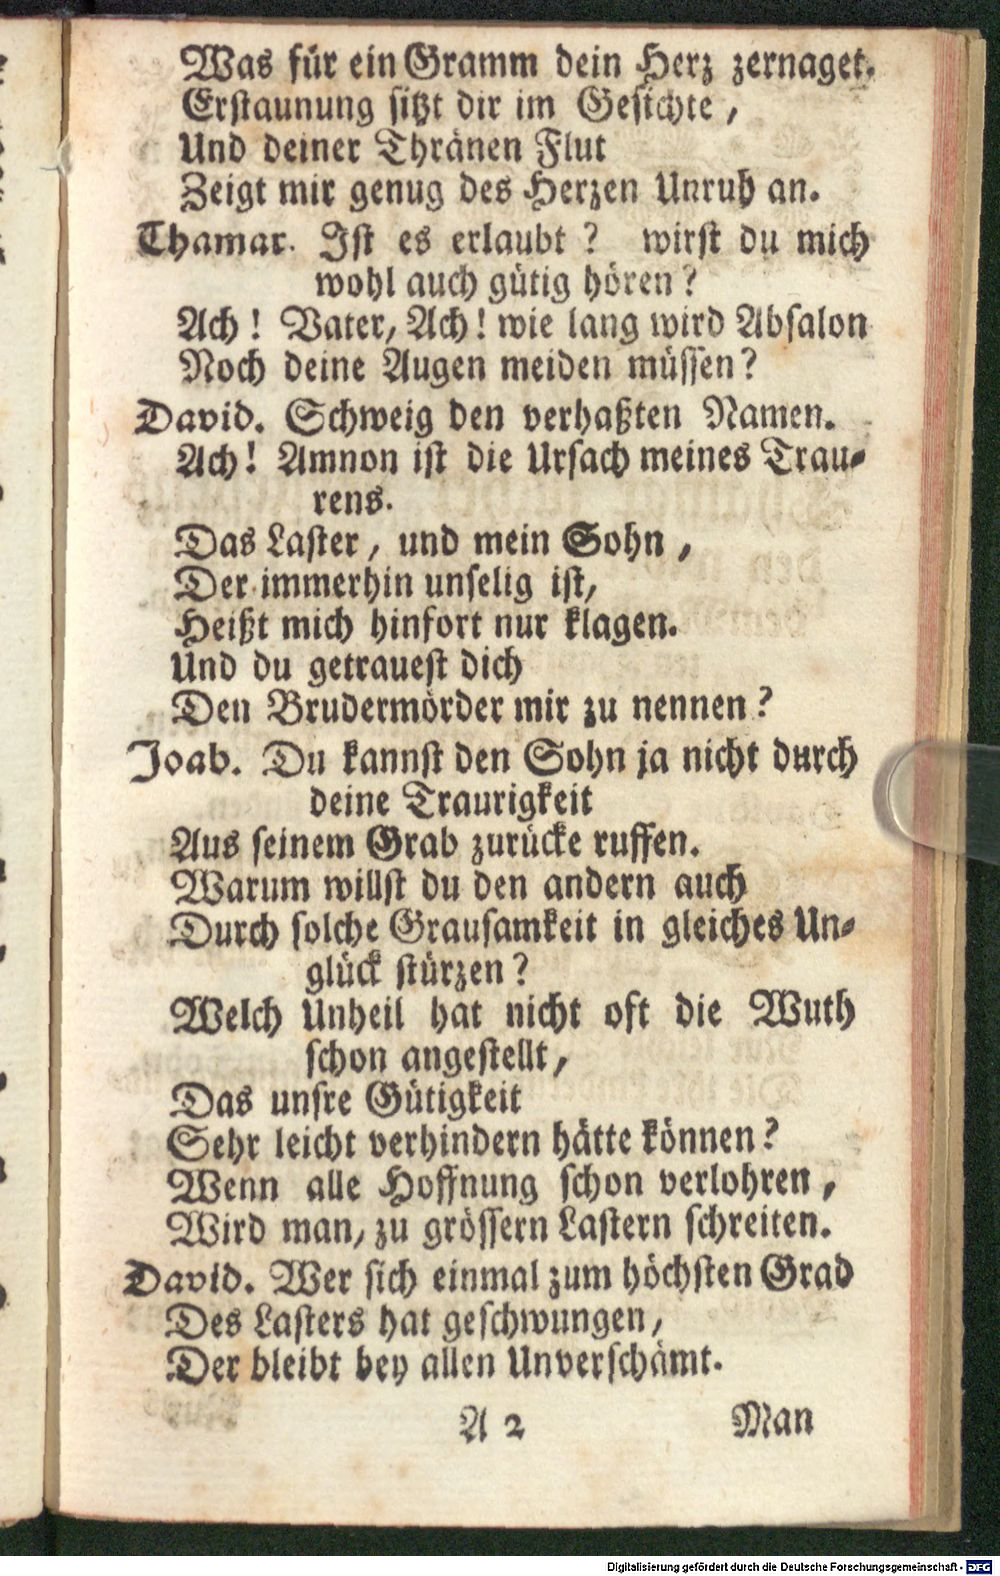 Was für ein Gramm dein Herz zernaget.
Erstaunung sitzt dir im Gesichte,
Und deiner Thränen Flut
Zeigt mir genug des Herzen Unruh an.
Thamar. Ist es erlaubt? wirst du mich
wohl auch gütig hören?
Ach! Vater, Ach! wie lang wird Absalon
Noch deine Augen meiden müssen?
David. Schweig den verhaßten Namen.
Ach! Amnon ist die Ursach meines Trau-
rens.
Das Laster, und mein Sohn,
Der immerhin unselig ist,
Heißt mich hinfort nur klagen.
Und du getrauest dich
Den Brudermörder mir zu nennen?
Joab. Du kannst den Sohn ja nicht durch
deine Traurigkeit
Aus seinem Grab zurücke ruffen.
Warum willst du den andern auch
Durch solche Grausamkeit in gleiches Un-
glück stürzen?
Welch Unheil hat nicht oft die Wuth
schon angestellt,
Das unsre Gütigkeit
Sehr leicht verhindern hätte können?
Wenn alle Hoffnung schon verlohren,
Wird man, zu grössern Lastern schreiten.
David. Wer sich einmal zum höchsten Grad
Des Lasters hat geschwungen,
Der bleibt bey allen Unverschämt.
A 2 Man
Digitalisierung gefördert durch die Deutsche Forschungsgemeinschaft - DFG